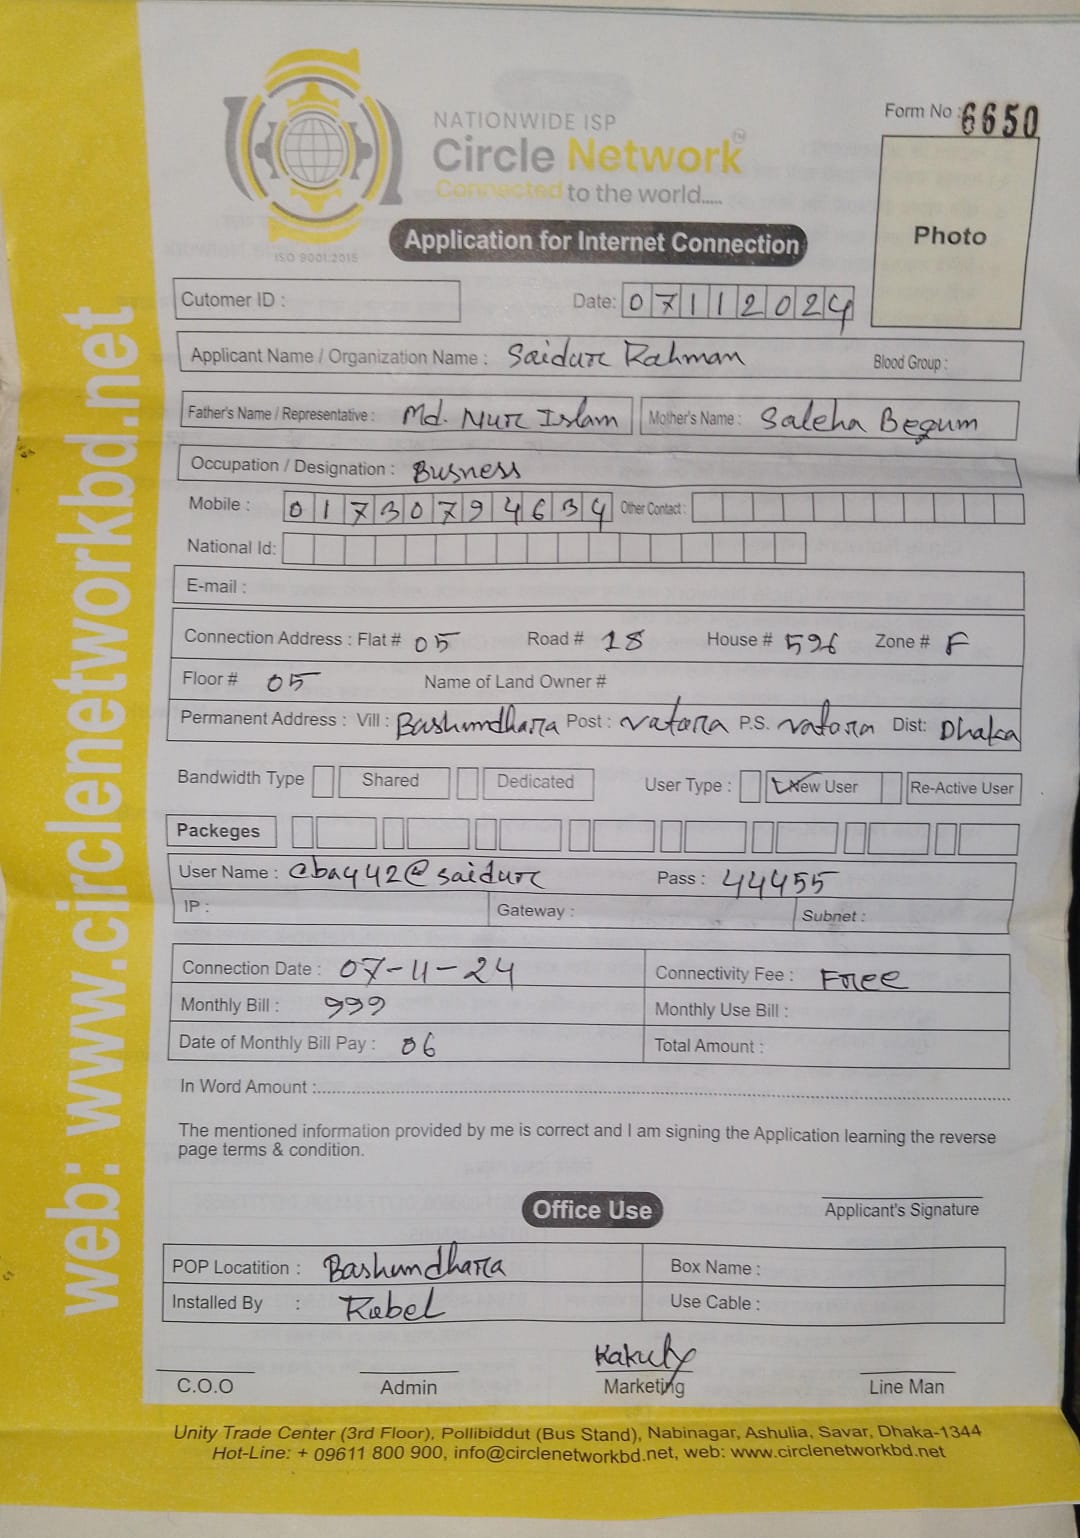 NATIONWIDE ISP
Circle Network
Connected to the world.....
ISO 9001:2015
Form No : 6650
Photo
Application for Internet Connection
Cutomer ID :
Date: 07112024
Applicant Name / Organization Name : Saidur Rahman Blood Group :
Father's Name / Representative : Md. Nur Islam Mother's Name : Saleha Begum
Occupation / Designation : Busness
Mobile : 01730794634 Other Contact :
National Id:
E-mail :
Connection Address : Flat # 05 Road # 18 House # 596 Zone # F
Floor # 05 Name of Land Owner #
Permanent Address : Vill : Bashundhara Post : vatara P.S. vatara Dist: Dhaka
Bandwidth Type Shared Dedicated User Type : New User Re-Active User
Packeges
User Name : cba442@saidur Pass : 44455
IP : Gateway : Subnet :
Connection Date : 07-11-24 Connectivity Fee : Free
Monthly Bill : 999 Monthly Use Bill :
Date of Monthly Bill Pay : 06 Total Amount :
In Word Amount :
The mentioned information provided by me is correct and I am signing the Application learning the reverse
page terms & condition.
Office Use
Applicant's Signature
POP Locatition : Bashundhara Box Name :
Installed By : Rubel Use Cable :
Kakuly
C.O.O Admin Marketing Line Man
Unity Trade Center (3rd Floor), Pollibiddut (Bus Stand), Nabinagar, Ashulia, Savar, Dhaka-1344
Hot-Line: + 09611 800 900, info@circlenetworkbd.net, web: www.circlenetworkbd.net
web: www.circlenetworkbd.net